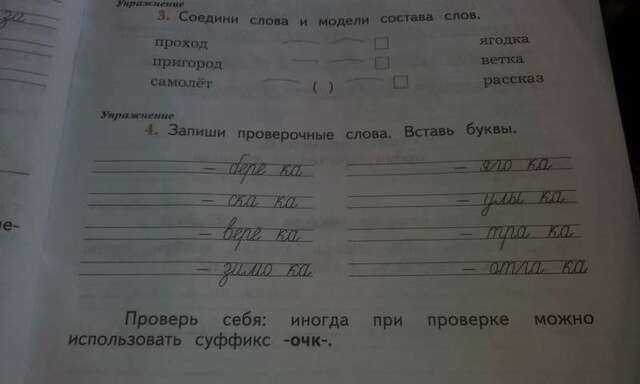 за
Упражнение
3. Соедини слова и модели состава слов.
проход ягодка
пригород ветка
самолёт ( ) рассказ
Упражнение
4. Запиши проверочные слова. Вставь буквы.
– бере ка – яго ка
– ска ка – улы ка
– вере ка – тра ка
не-
– зимо ка – отга ка
Проверь себя: иногда при проверке можно
использовать суффикс -очк-.